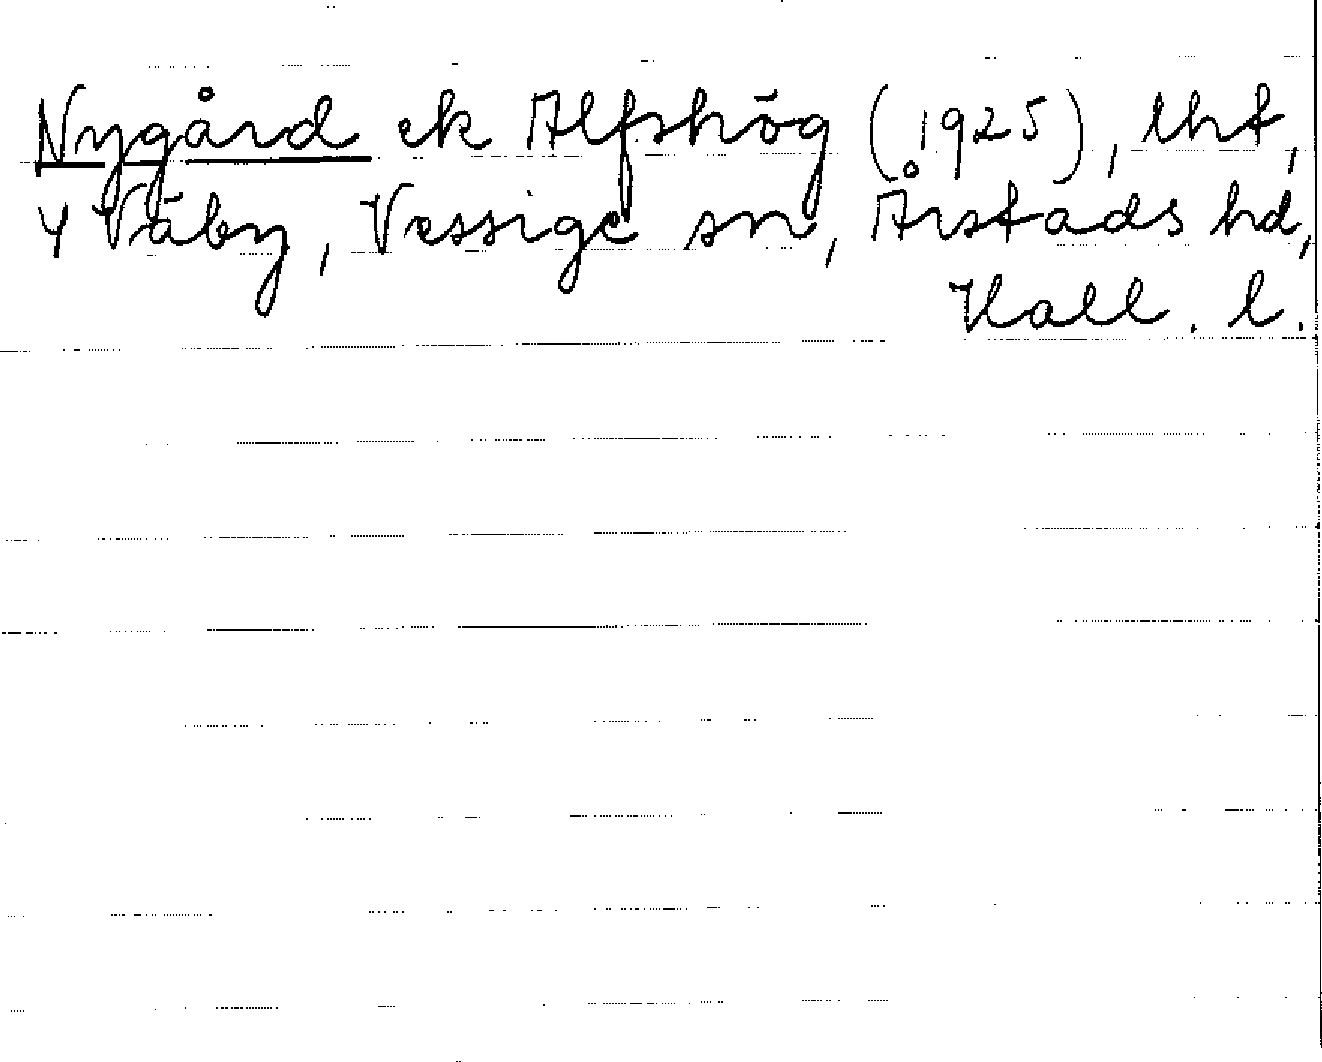 Nygård ek Alfshög (1925), lht,
4 Väby, Vessige sn, Årstads hd,
Hall. l.